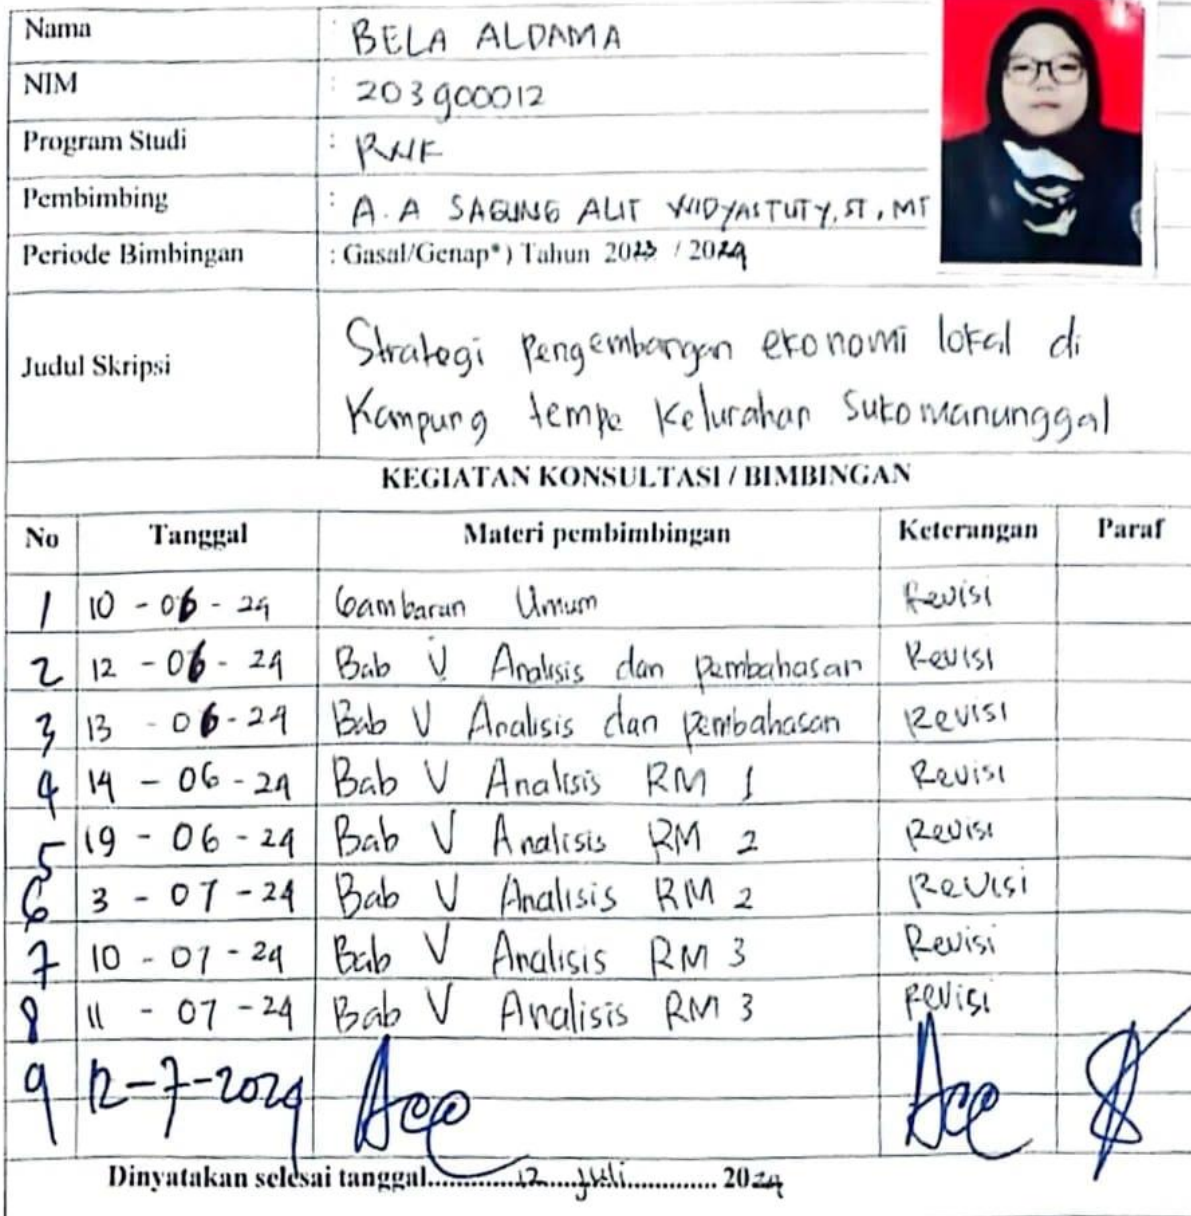 Nama : BELA ALDAMA
NIM : 203900012
Program Studi : PWK
Pembimbing : A.A SAGUNG ALIT WIDYASTUTY, ST, MT
Periode Bimbingan : Gasal/Genap*) Tahun 2023 / 2024
Judul Skripsi Strategi Pengembangan ekonomi lokal di
Kampung tempe Kelurahan Sukomanunggal
KEGIATAN KONSULTASI / BIMBINGAN
No Tanggal Materi pembimbingan Keterangan Paraf
1 10 - 06 - 24 Gambaran Umum Revisi
2 12 - 06 - 24 Bab V Analisis dan pembahasan Revisi
3 13 - 06 - 24 Bab V Analisis dan pembahasan Revisi
4 14 - 06 - 24 Bab V Analisis RM 1 Revisi
5 19 - 06 - 24 Bab V Analisis RM 2 Revisi
6 3 - 07 - 24 Bab V Analisis RM 2 Revisi
7 10 - 07 - 24 Bab V Analisis RM 3 Revisi
8 11 - 07 - 24 Bab V Analisis RM 3 Revisi
9 12-7-2024 Acc Acc
Dinyatakan selesai tanggal..............12....Juli.............. 2024